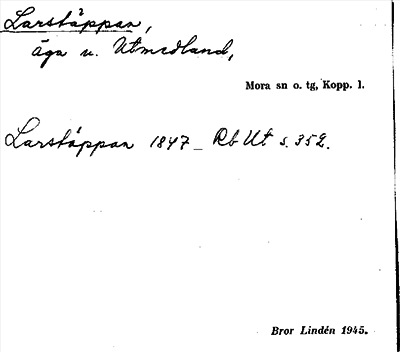 Larstäppan,
äga u. Utmedland,
Mora sn o. tg, Kopp. l.
Larstäppan 1847 – Rb Ut s. 352.
Bror Lindén 1945.